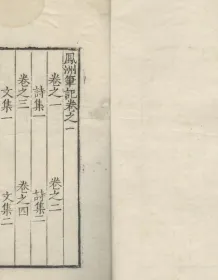 鳳洲筆記卷之一
卷之一　卷之二
詩集一　詩集二
卷之三　卷之四
文集一　文集二